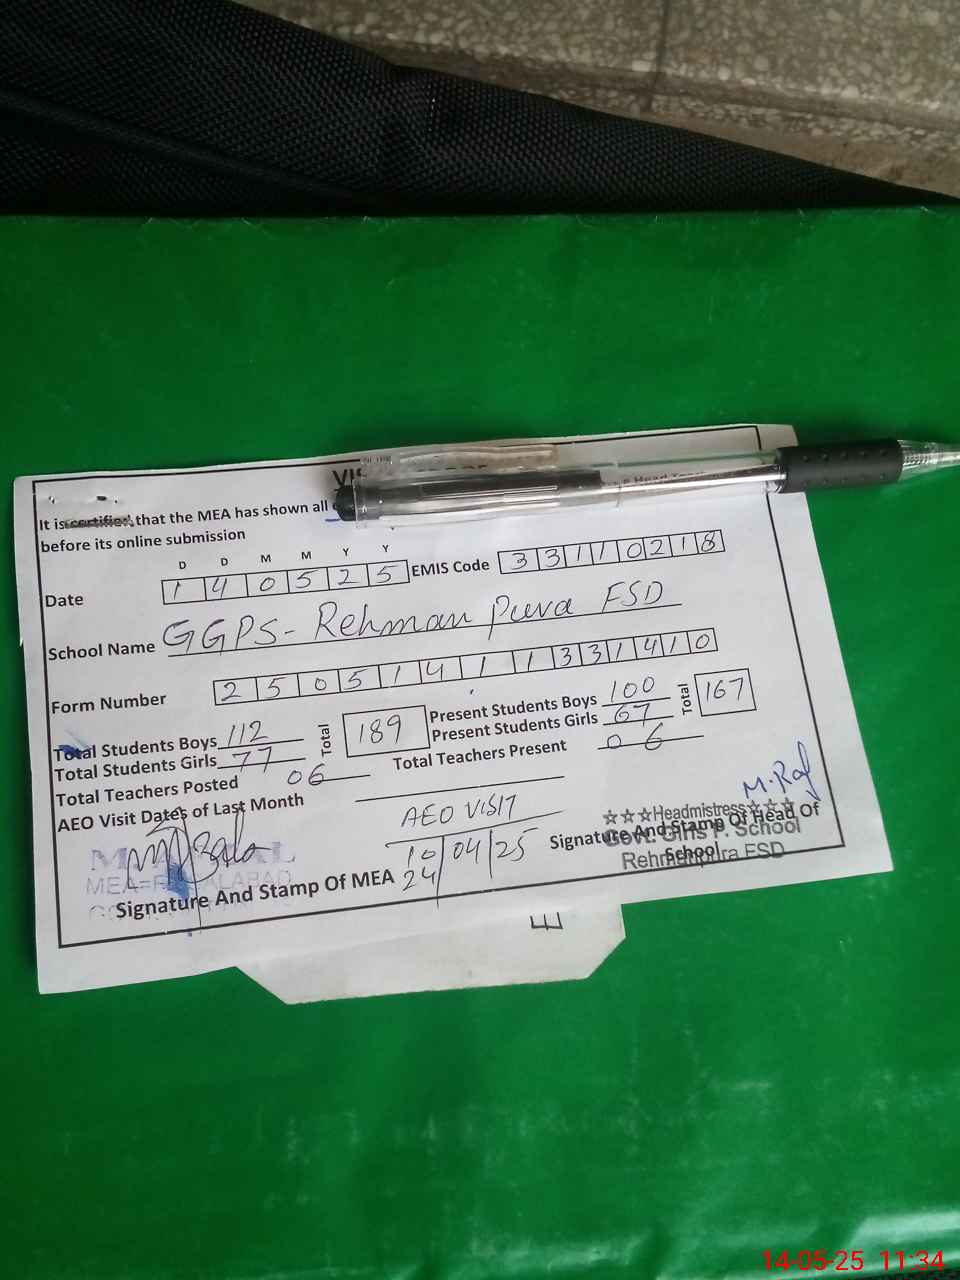 It is certified that the MEA has shown all
before its online submission
D D M M Y Y
Date 1 4 0 5 2 5 EMIS Code 3 3 1 1 0 2 1 8
School Name GGPS-Rehman Pura FSD
Form Number 2 5 0 5 1 4 1 1 3 3 1 4 1 0
Total Students Boys 112 Total 189 Present Students Boys 100 Total 167
Total Students Girls 77 Present Students Girls 67
Total Teachers Posted 06 Total Teachers Present 06
AEO Visit Dates of Last Month
AEO VISIT
10/04/25
24
Signature And Stamp Of MEA
M. Raf
☆☆☆Headmistress☆☆☆
Signature And Stamp Of Head Of
School
Govt. Girls P. School
Rehmanpura FSD
14-05-25 11:34